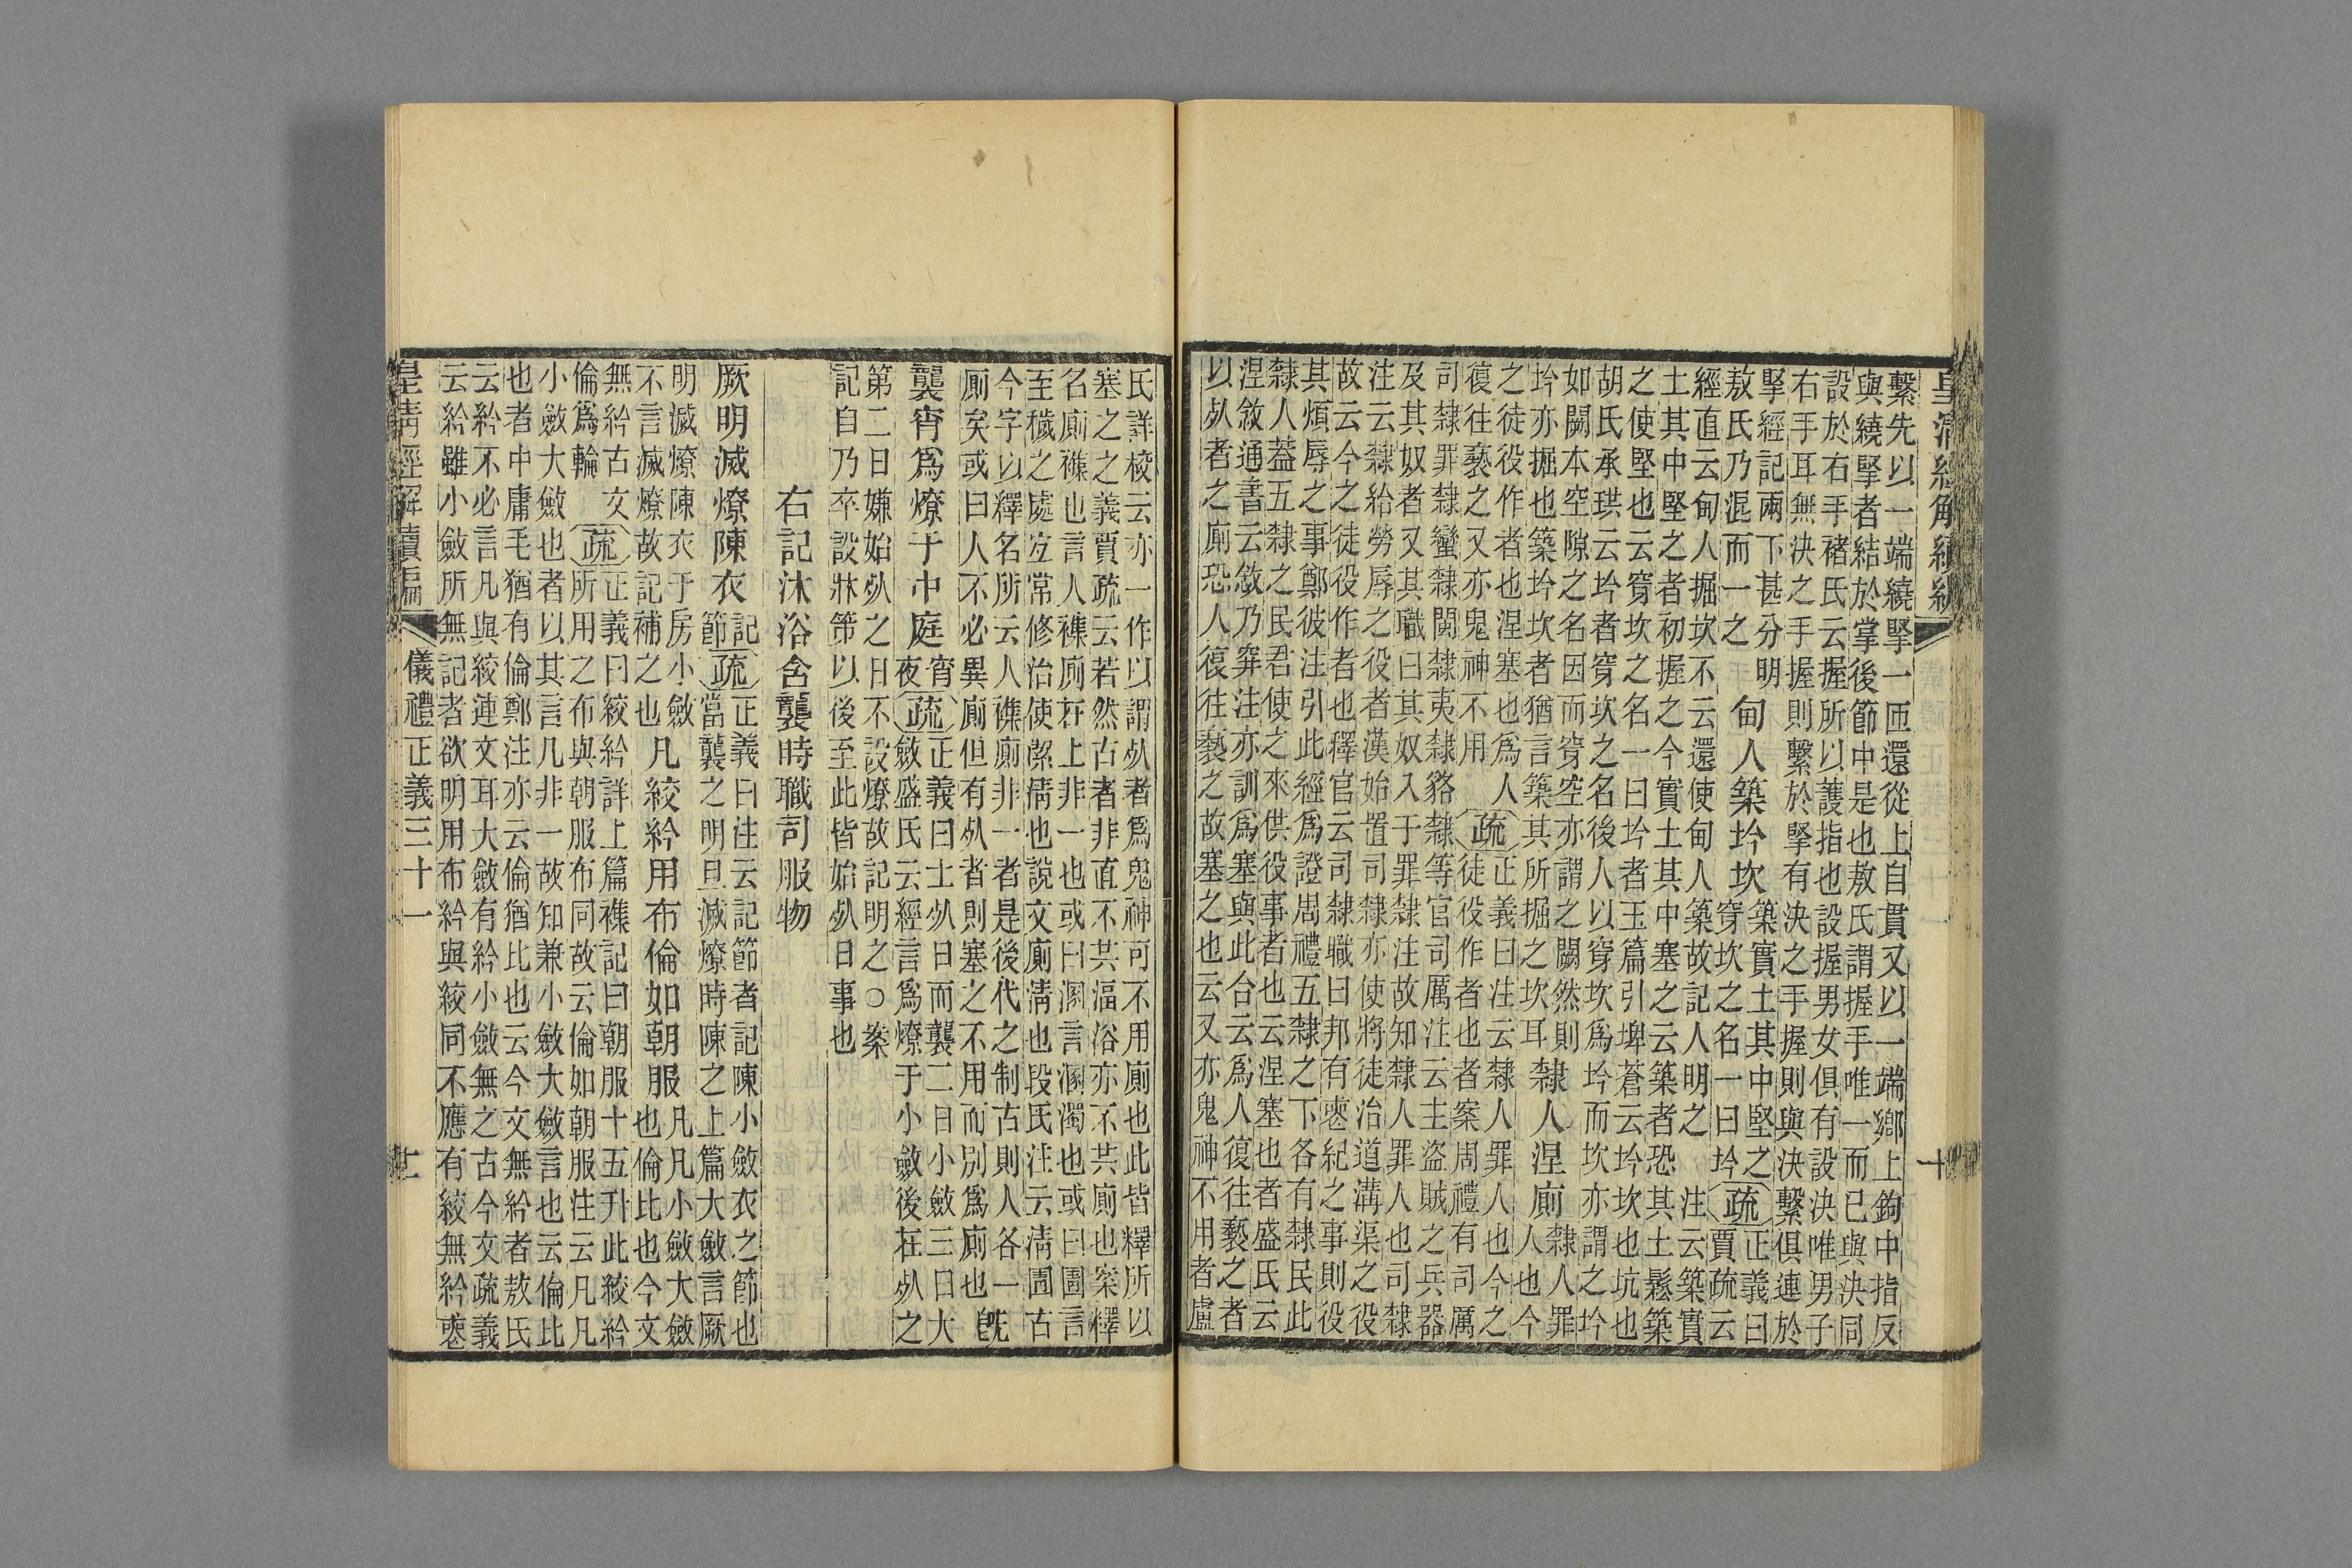 皇清經解續編
十
繫先以一端繞掔一匝還從上自貫又以一端鄉上鉤中指反
與繞掔者結於掌後節中是也敖氏謂握手唯一而已與決同
設於右手褚氏云握所以護指也設握男女俱有設決唯男子
右手耳無決之手握則繫於掔有決之手握則與決繫俱連於
掔經記兩下甚分明
敖氏乃混而一之
甸人築坅坎
築實土其中堅之
穿坎之名一曰坅
疏
正義曰
賈疏云
經直云甸人掘坎不云還使甸人築故記人明之 注云築實
土其中堅之者初握之今實土其中塞之云築者恐其土鬆築
之使堅也云穿坎之名一曰坅者玉篇引埤蒼云坅坎也坑也
胡氏承珙云坅者穿坎之名後人以穿坎爲坅而坎亦謂之坅
如闕本空隙之名因而穿空亦謂之闕然則
坅亦掘也築坅坎者猶言築其所掘之坎耳
隸人涅廁
隸人罪
人也今
之徒役作者也涅塞也爲人
復往褻之又亦鬼神不用
疏
正義曰注云隸人罪人也今之
徒役作者也者案周禮有司厲
司隸罪隸蠻隸閩隸夷隸貉隸等官司厲注云主盜賊之兵器
及其奴者又其職曰其奴入于罪隸注故知隸人罪人也司隸
注云隸給勞辱之役者漢始置司隸亦使將徒治道溝渠之役
故云今之徒役作者也釋官云司隸職曰邦有祭紀之事則役
其煩辱之事鄭彼注引此經爲證周禮五隸之下各有隸民此
隸人蓋五隸之民君使之來供役事者也云涅塞也者盛氏云
涅敘通書云敘乃穽注亦訓爲塞與此合云爲人復往褻之者
以死者之廁恐人復往褻之故塞之也云又亦鬼神不用者盧
氏詳校云亦一作以謂死者爲鬼神可不用廁也此皆釋所以
塞之之義賈疏云若然古者非直不共湢浴亦不共廁也案釋
名廁襍也言人襍廁在上非一也或曰溷言溷濁也或曰圊言
至穢之處宜常修治使潔清也說文廁清也段氏注云清圊古
今字以釋名所云人襍廁非一者是後代之制古則人各一
廁矣或曰人不必異廁但有死者則塞之不用而別爲廁也
既
襲宵爲燎于中庭
宵
夜
疏
正義曰士死日而襲二日小斂三日大
斂盛氏云經言爲燎于小斂後在死之
第二日嫌始死之日不設燎故記明之○案
記自乃卒設牀笫以後至此皆始死日事也
右記沐浴含襲時職司服物
厥明滅燎陳衣
記
節
疏
正義曰注云記節者記陳小斂衣之節也
當襲之明旦滅燎時陳之上篇大斂言厥
明滅燎陳衣于房小斂
不言滅燎故記補之也
凡絞紟用布倫如朝服
凡凡小斂大斂
也倫比也今文
無紟古文
倫爲輪
疏
正義曰絞紟詳上篇襍記曰朝服十五升此絞紟
所用之布與朝服布同故云倫如朝服注云凡凡
小斂大斂也者以其言凡非一故知兼小斂大斂言也云倫比
也者中庸毛猶有倫鄭注亦云倫猶比也云今文無紟者敖氏
云紟不必言凡與絞連文耳大斂有紟小斂無之古今文疏義
云紟雖小斂所無記者欲明用布紟與絞同不應有絞無紟
皇清經解續編
儀禮正義三十一